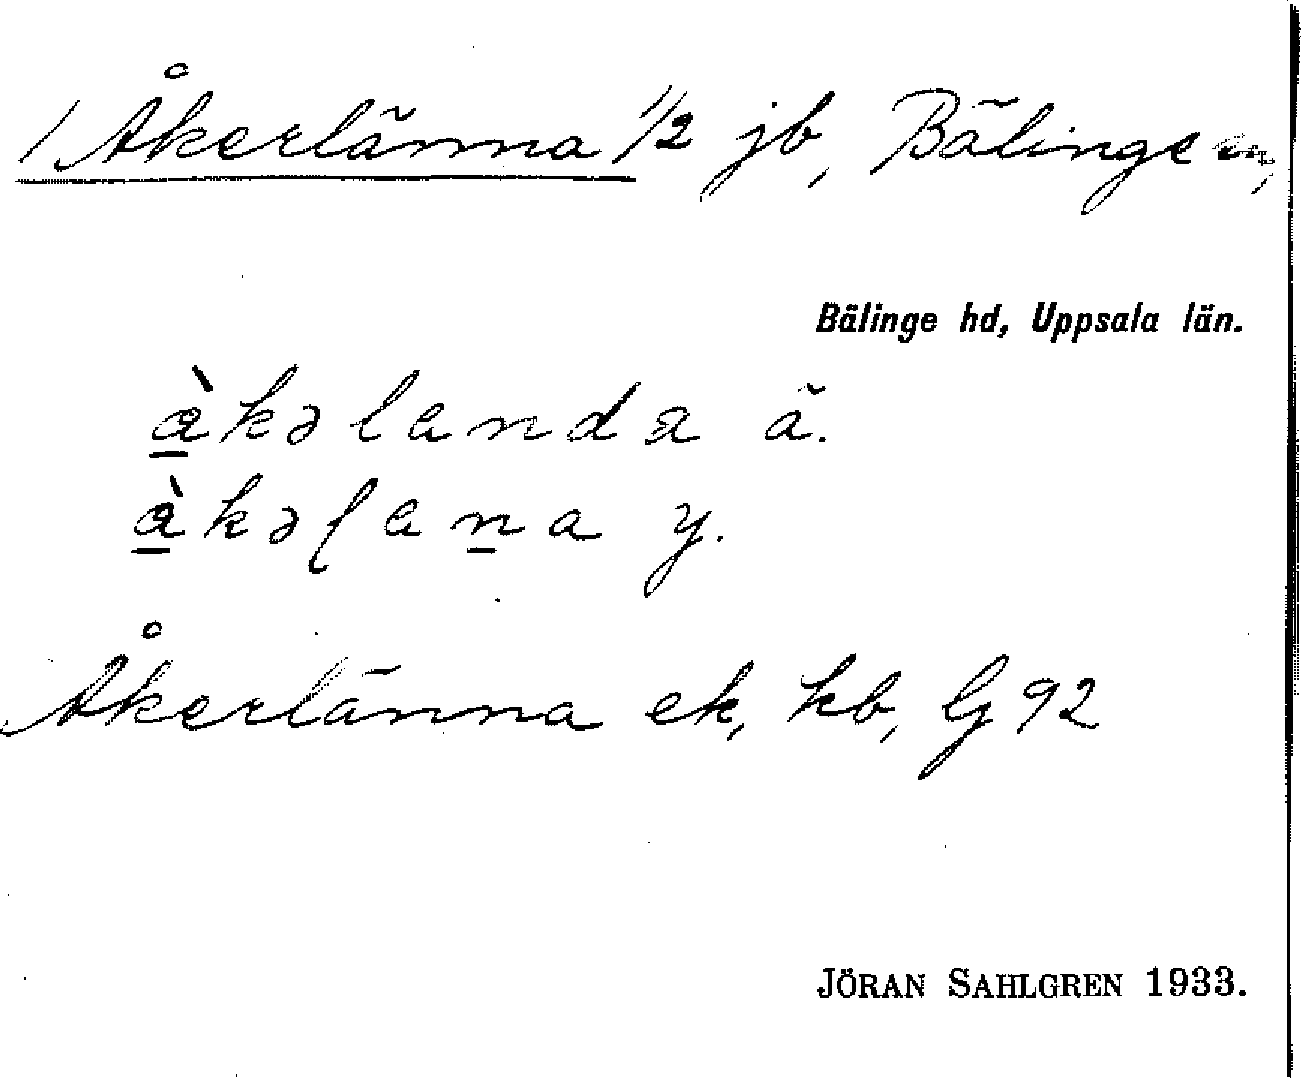 1 Åkerlänna 1/2 jb, Bälinge sn,
Bälinge hd, Uppsala län.
à̱kəlanda ä.
à̱kəɭaṉa y.
Åkerlänna ek, kb, G 92
JÖRAN SAHLGREN 1933.